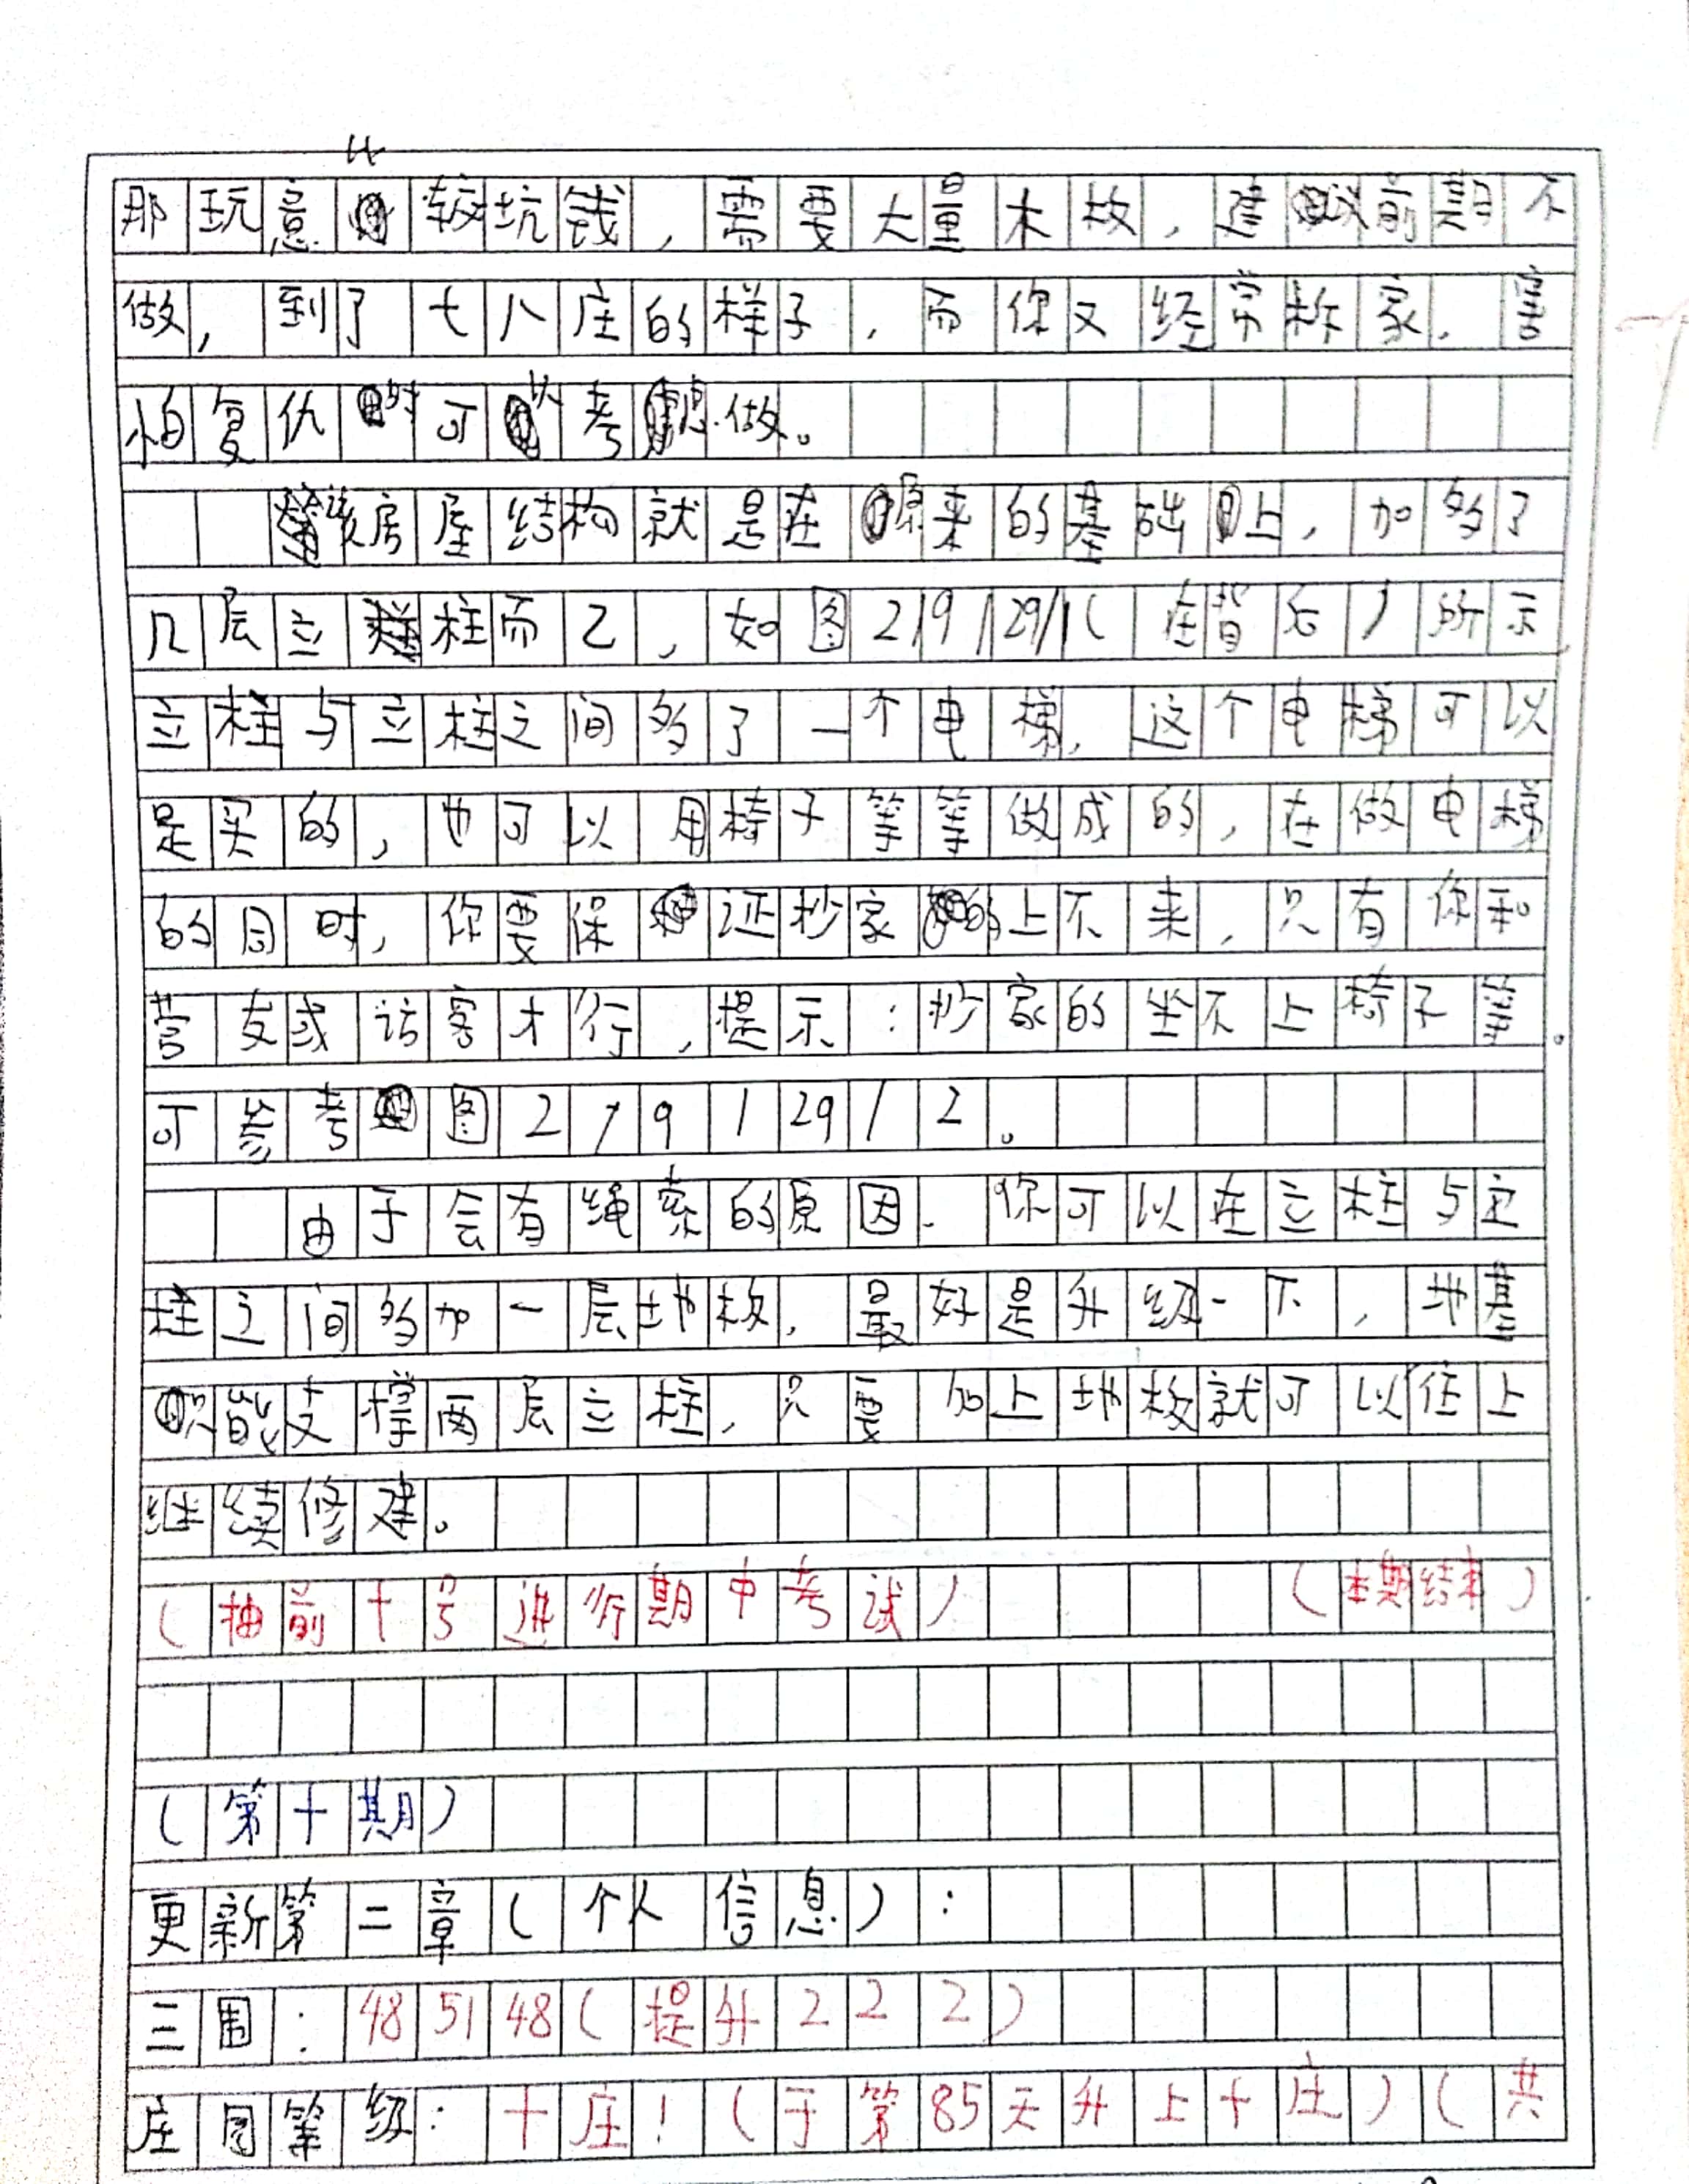 那玩意比较坑钱,需要大量木板,建议前期不
做,到了七八庄的样子,而你又经常抄家,害
怕复仇时可以考虑做。
该房屋结构就是在原来的基础上,加多了
几层立柱而已,如图2/9/29/1(在背后)所示,
立柱与立柱之间多了一个电梯,这个电梯可以
是买的,也可以用椅子等等做成的,在做电梯
的同时,你要保证抄家的上不来,只有你和
营友或访客才行,提示:抄家的坐不上椅子等。
可参考图2/9/29/2。
由于会有绳索的原因,你可以在立柱与立
柱之间多加一层地板,最好是升级一下,地基
只能支撑两层立柱,只要加上地板就可以往上
继续修建。
(抽前十号进行期中考试) (本期结束)
(第十期)
更新第二章(个人信息):
三围:48 51 48(提升2 2 2)
庄园等级:十庄!(于第85天升上十庄)(共